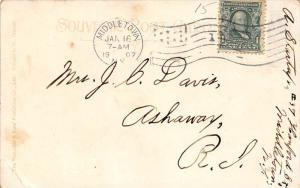 15
SOUVENIR POST CARD
MIDDLETOWN
JAN 16
7-AM
1907
N.Y.
1
Mrs. J. C. Davis,
Ashaway,
R. I.
Middletown
N.Y.